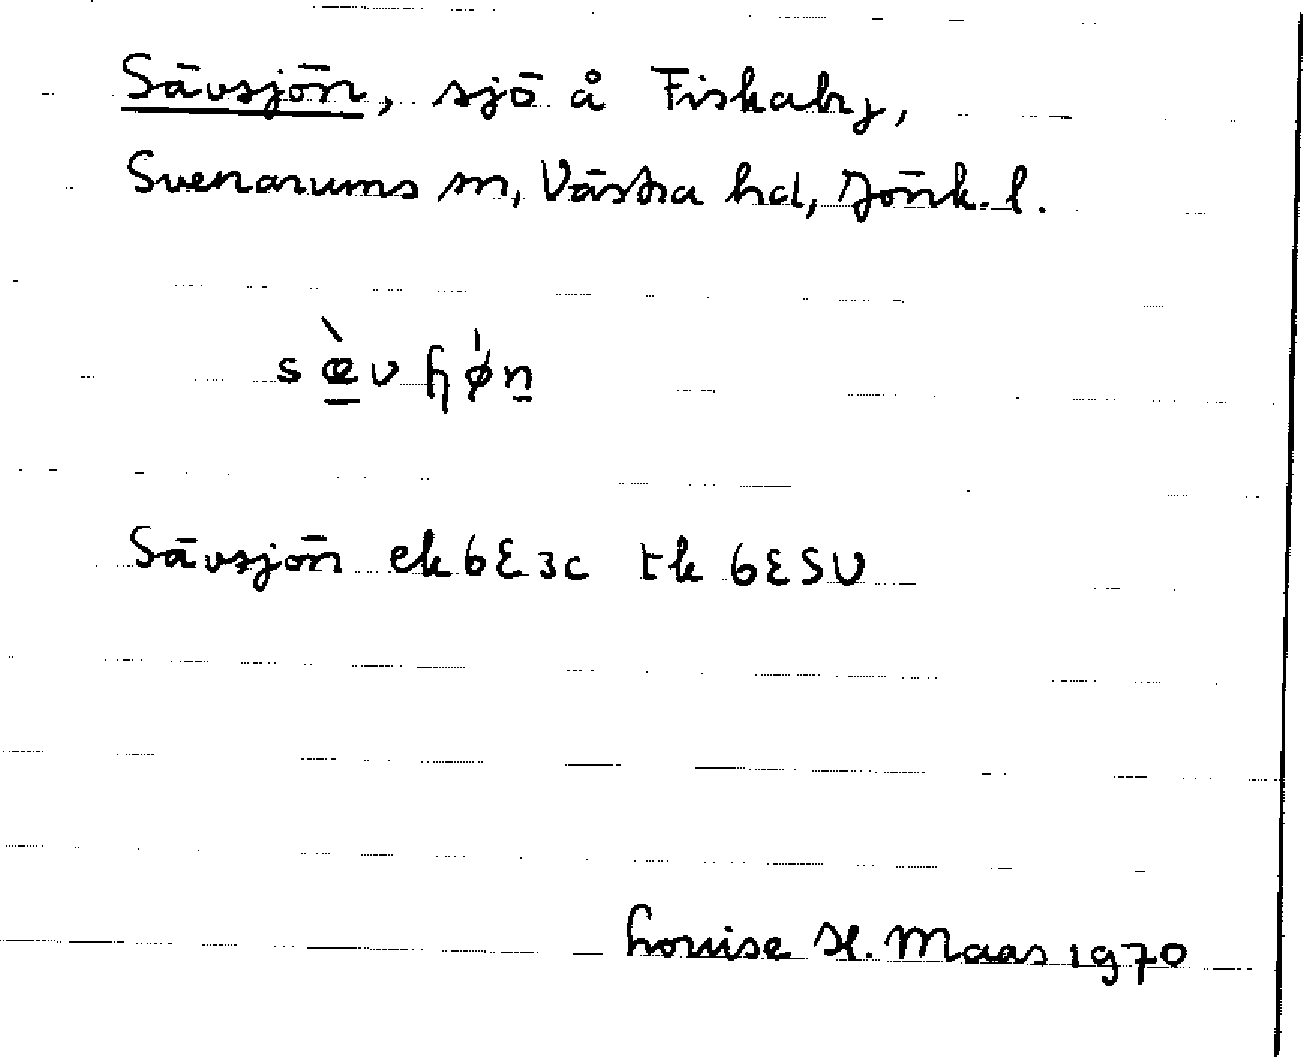 Sävsjön, sjö å Fiskaby,
Svenarums sn, Västra hd, Jönk. l.
sæ̀vɧǿn
Sävsjön ek 6E3c tk 6E SV
Louise H. Maas 1970